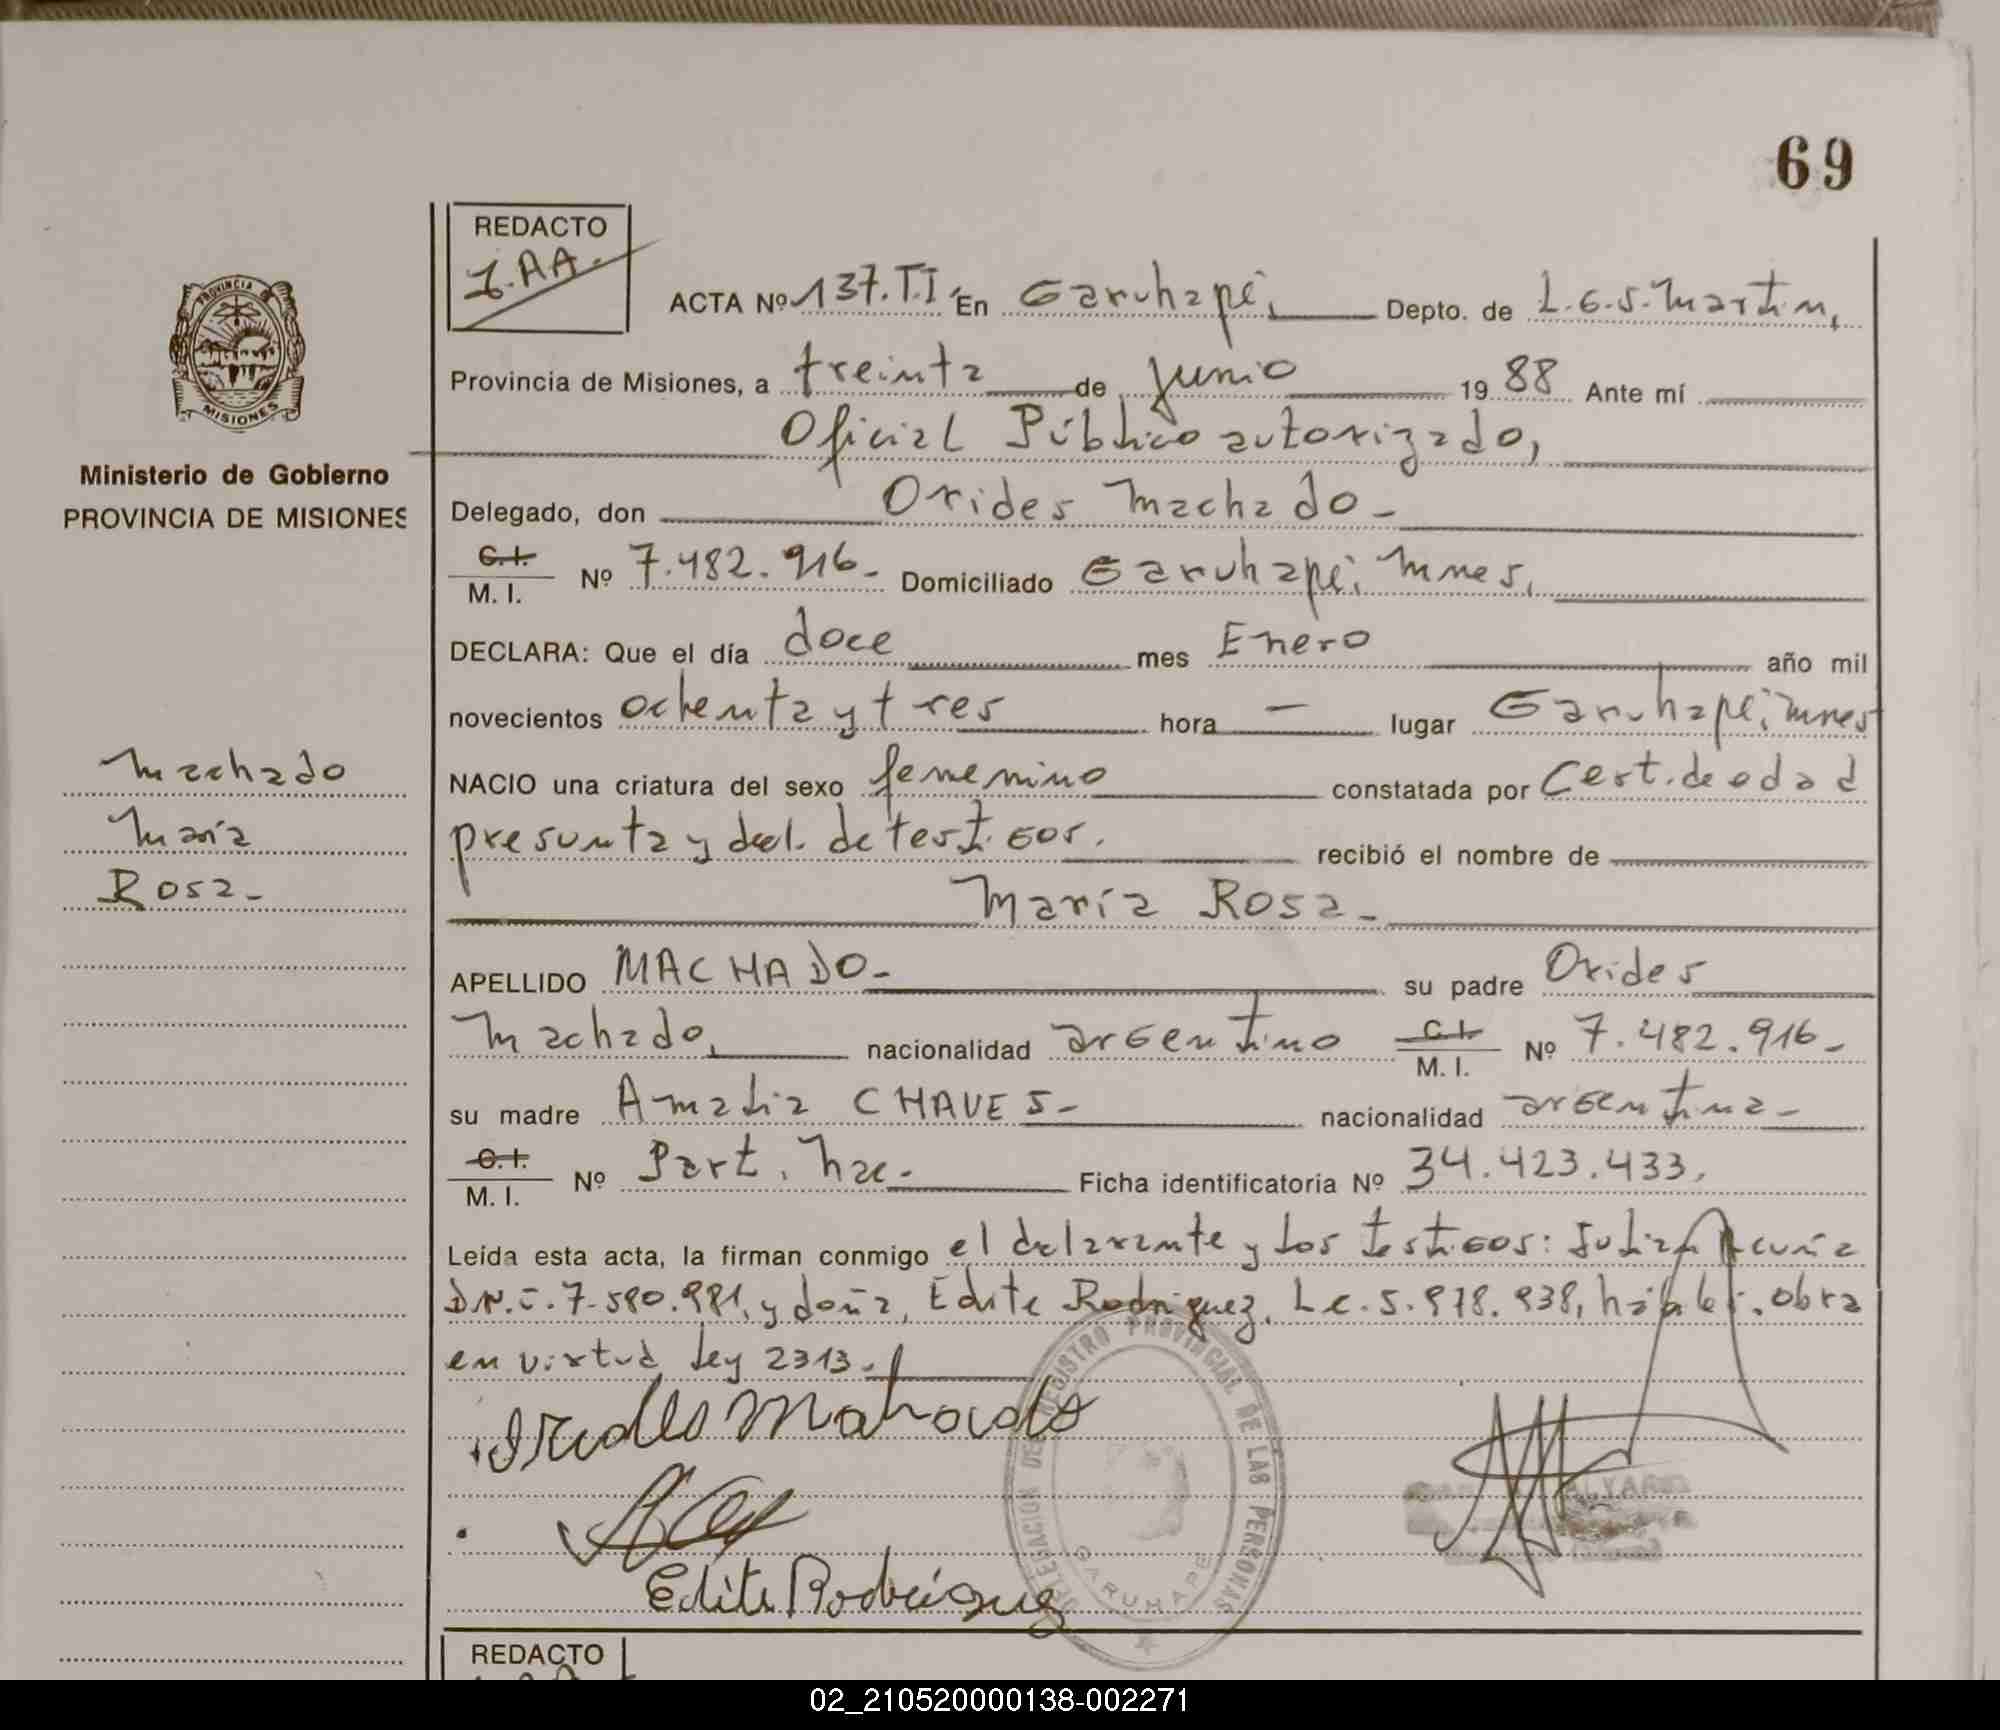 69
REDACTO
I.AA.
ACTA Nº 137.T.I En Garuhapé, Depto. de L.G.S.Martin,
Provincia de Misiones, a treinta de Junio 1988 Ante mí
Oficial Público autorizado,
Delegado, don Orides Machado-
C.I. M. I. Nº 7.482.916- Domiciliado Garuhapé, Mnes,
DECLARA: Que el día doce mes Enero año mil
novecientos ochenta y tres hora — lugar Garuhapé, Mnes
NACIO una criatura del sexo femenino constatada por Cert. de edad
presunta y decl. de testigos. recibió el nombre de
María Rosa-
APELLIDO MACHADO- su padre Orides
Machado, nacionalidad argentino C.I. M. I. Nº 7.482.916-
su madre Amalia CHAVES- nacionalidad argentina-
C.I. M. I. Nº Part. Nac- Ficha identificatoria Nº 34.423.433,
Leída esta acta, la firman conmigo el declarante y los testigos: Acuña
y doña, Edite Rodriguez, L.c. 5.978.938, hábiles. obra
en virtud Ley 2313.
Machado
Edite Rodriguez
DELEGACION DEL REGISTRO PROVINCIAL DE LAS PERSONAS
GARUHAPE
PROVINCIA
MISIONES
Ministerio de Gobierno
PROVINCIA DE MISIONES
Machado
María
Rosa-
REDACTO
02_210520000138-002271